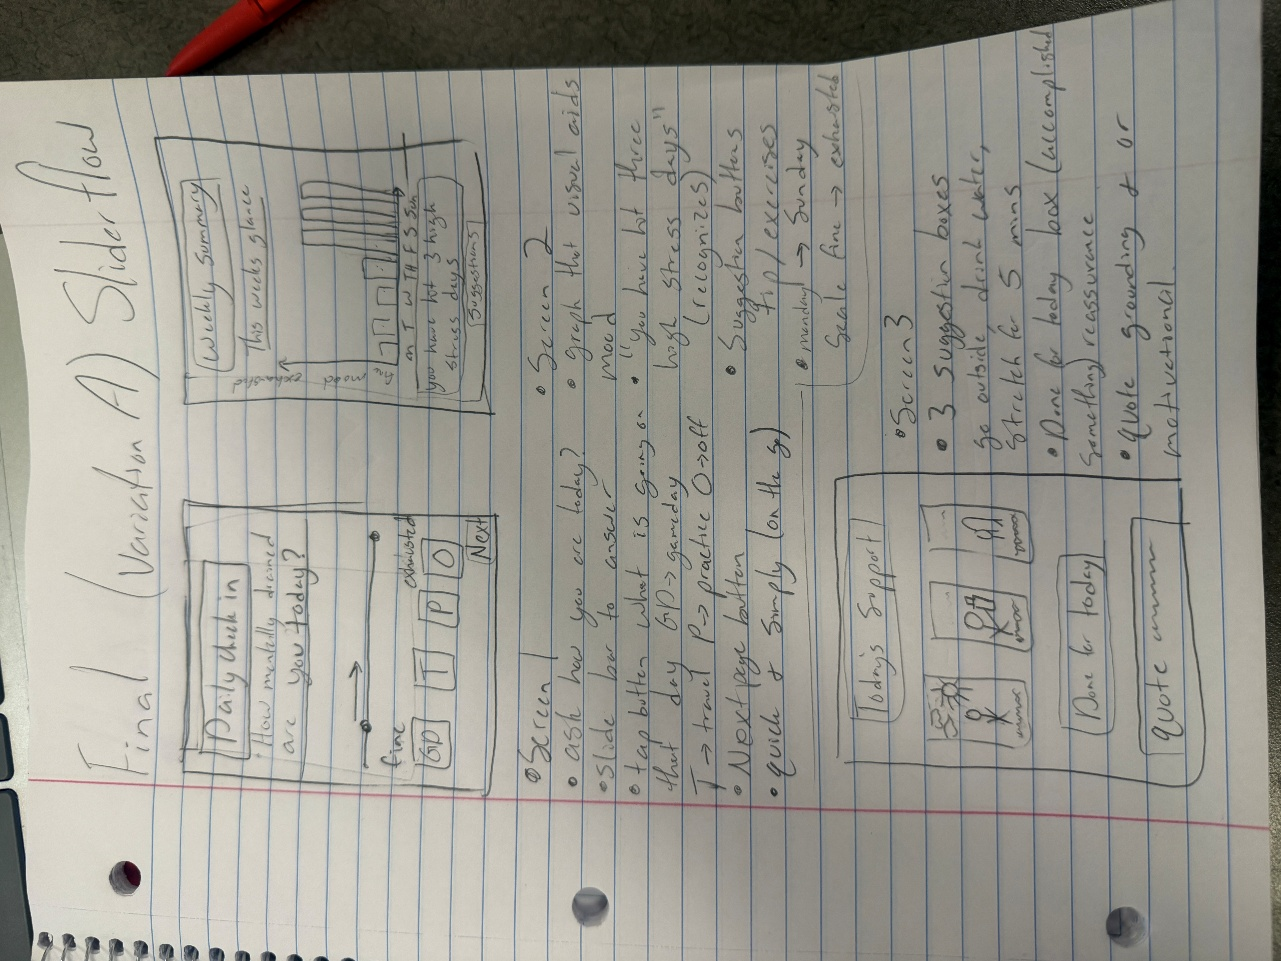 Final (Variation A) Slider flow
Daily check in
How mentally drained
are you today?
fine
exhausted
GP
T
P
O
Next
Weekly Summary
This weeks glance
exhausted
mood
fine
m T W TH F S Sun
you have hit 3 high
stress days
Suggestions
• Screen 1
• ask how you are today?
• slide bar to answer
• tap button what is going on
that day GP → gameday
T → travel P → practice O → off
• Next page button
• quick & simply (on the go)
• Screen 2
• graph that visual aids
mood
• "you have hit three
high stress days"
(recognizes)
• Suggestion buttons
tip/exercises
• monday → Sunday
Scale fine → exhausted
Today's Support
Done for today
quote
• Screen 3
• 3 suggestion boxes
go outside drink water,
stretch for 5 mins
• Done for today box (accomplished
something) reassurance
• quote grounding & or
motivational.